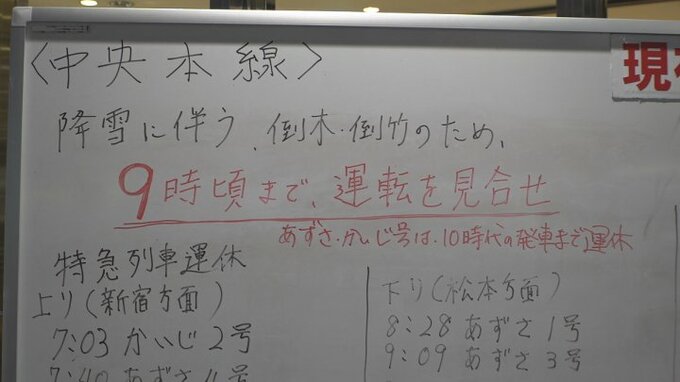 〈中央本線〉
現
降雪に伴う、倒木・倒竹のため、
9時頃まで、運転を見合せ
あずさ・かいじ号は、10時代の発車まで運休
特急列車運休
上り(新宿方面)
7:03 かいじ 2号
7:40 あずさ 4号
下り(松本方面)
8:28 あずさ 1号
9:09 あずさ 3号